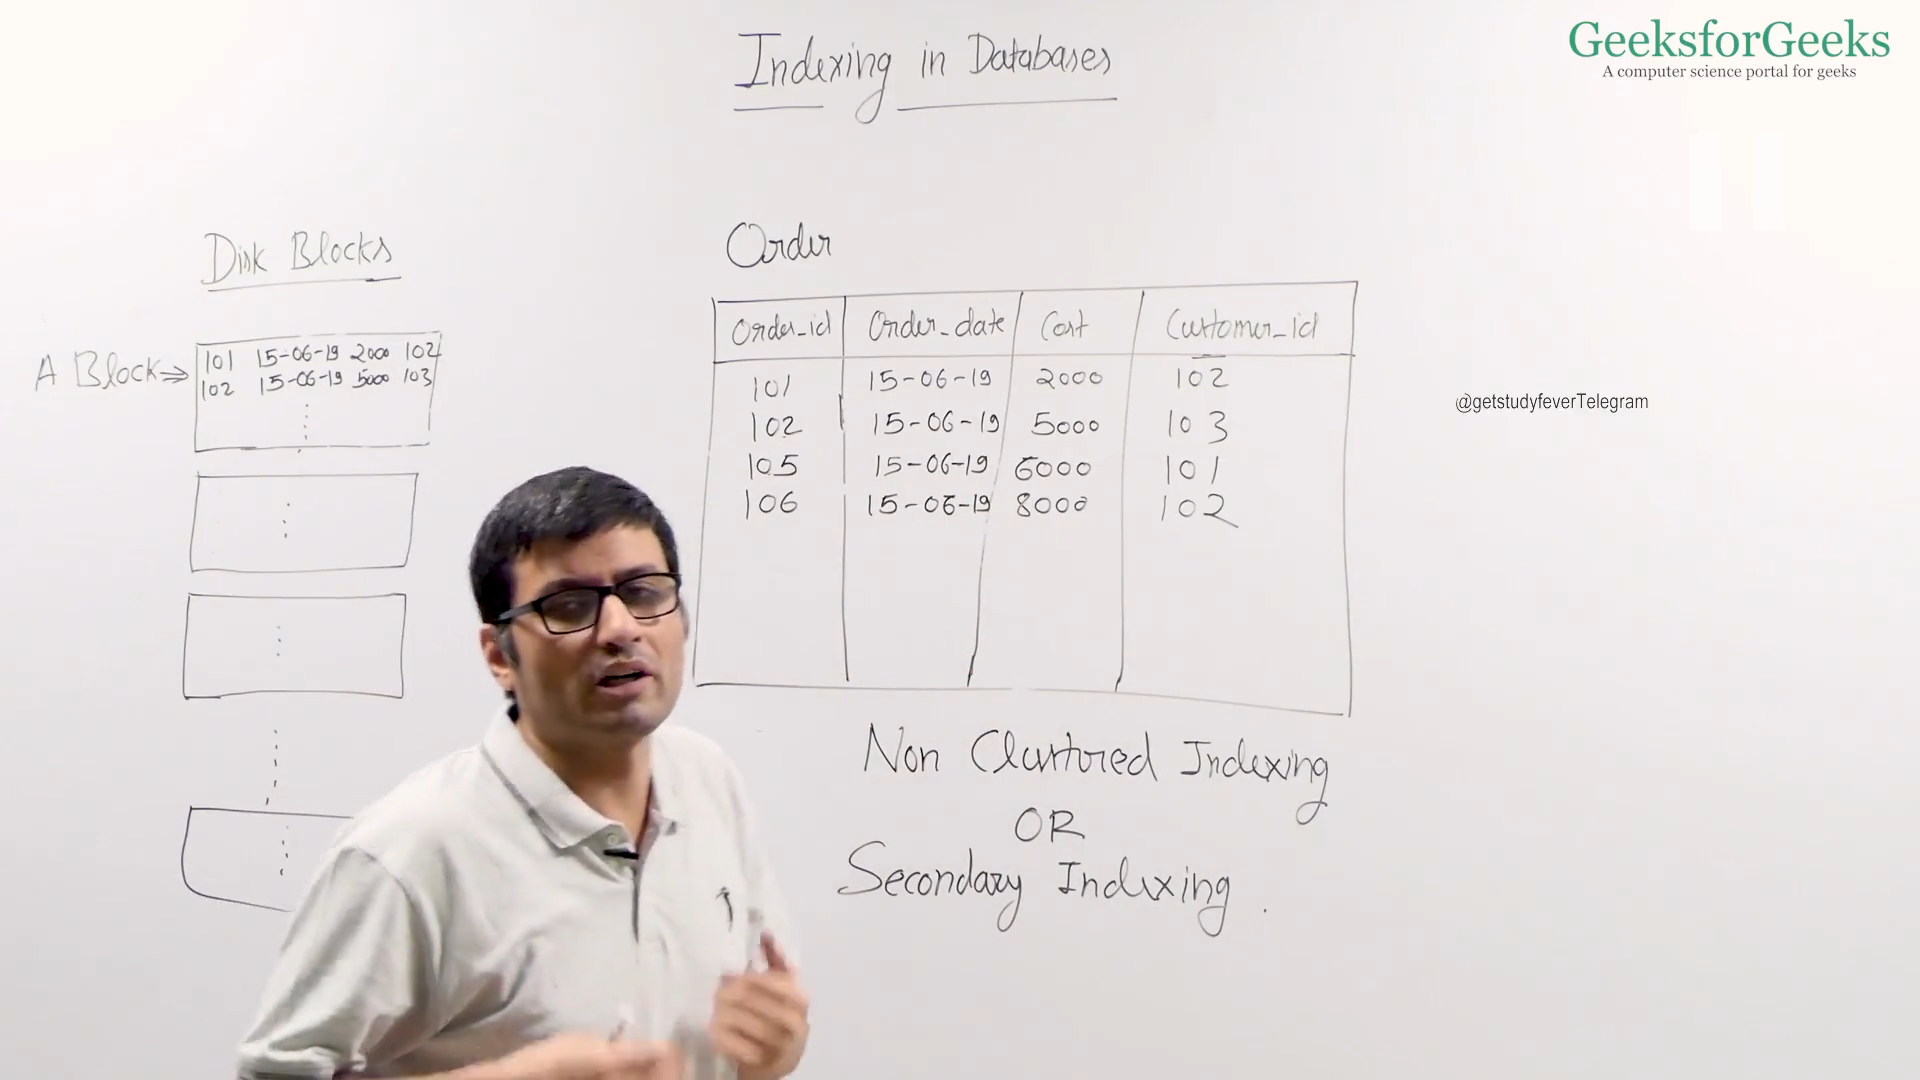 Indexing in Databases
GeeksforGeeks
A computer science portal for geeks
Disk Blocks
A Block
101 15-06-19 2000 102
102 15-06-19 5000 103
Order
Order_id Order_date Cost Customer_id
101 15-06-19 2000 102
102 15-06-19 5000 103
105 15-06-19 6000 101
106 15-06-19 8000 102
@getstudyfeverTelegram
Non Clustured Indexing
OR
Secondary Indexing